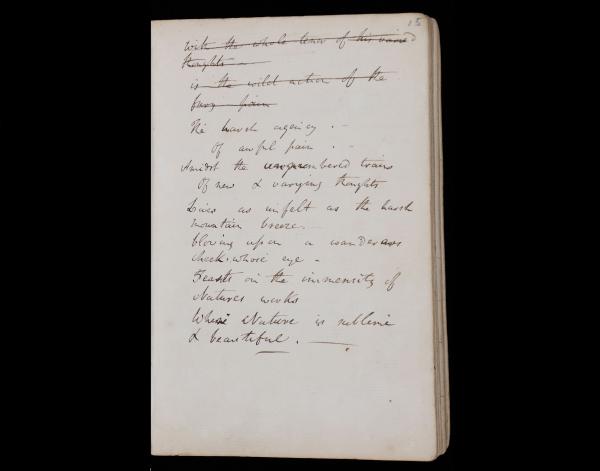 15
with the whole tenor of his varied
thoughts –
is the wild action of the
fury pain
The harsh agency . –
Of awful pain . –
Amidst the unnumbered train
Of new & varying thoughts
Lives as unfelt as the harsh
mountain breeze.
blowing upon a wanderers
cheek. whose eye –
Feasts on the immensity of
Natures works
Where Nature is sublime
& beautiful . —